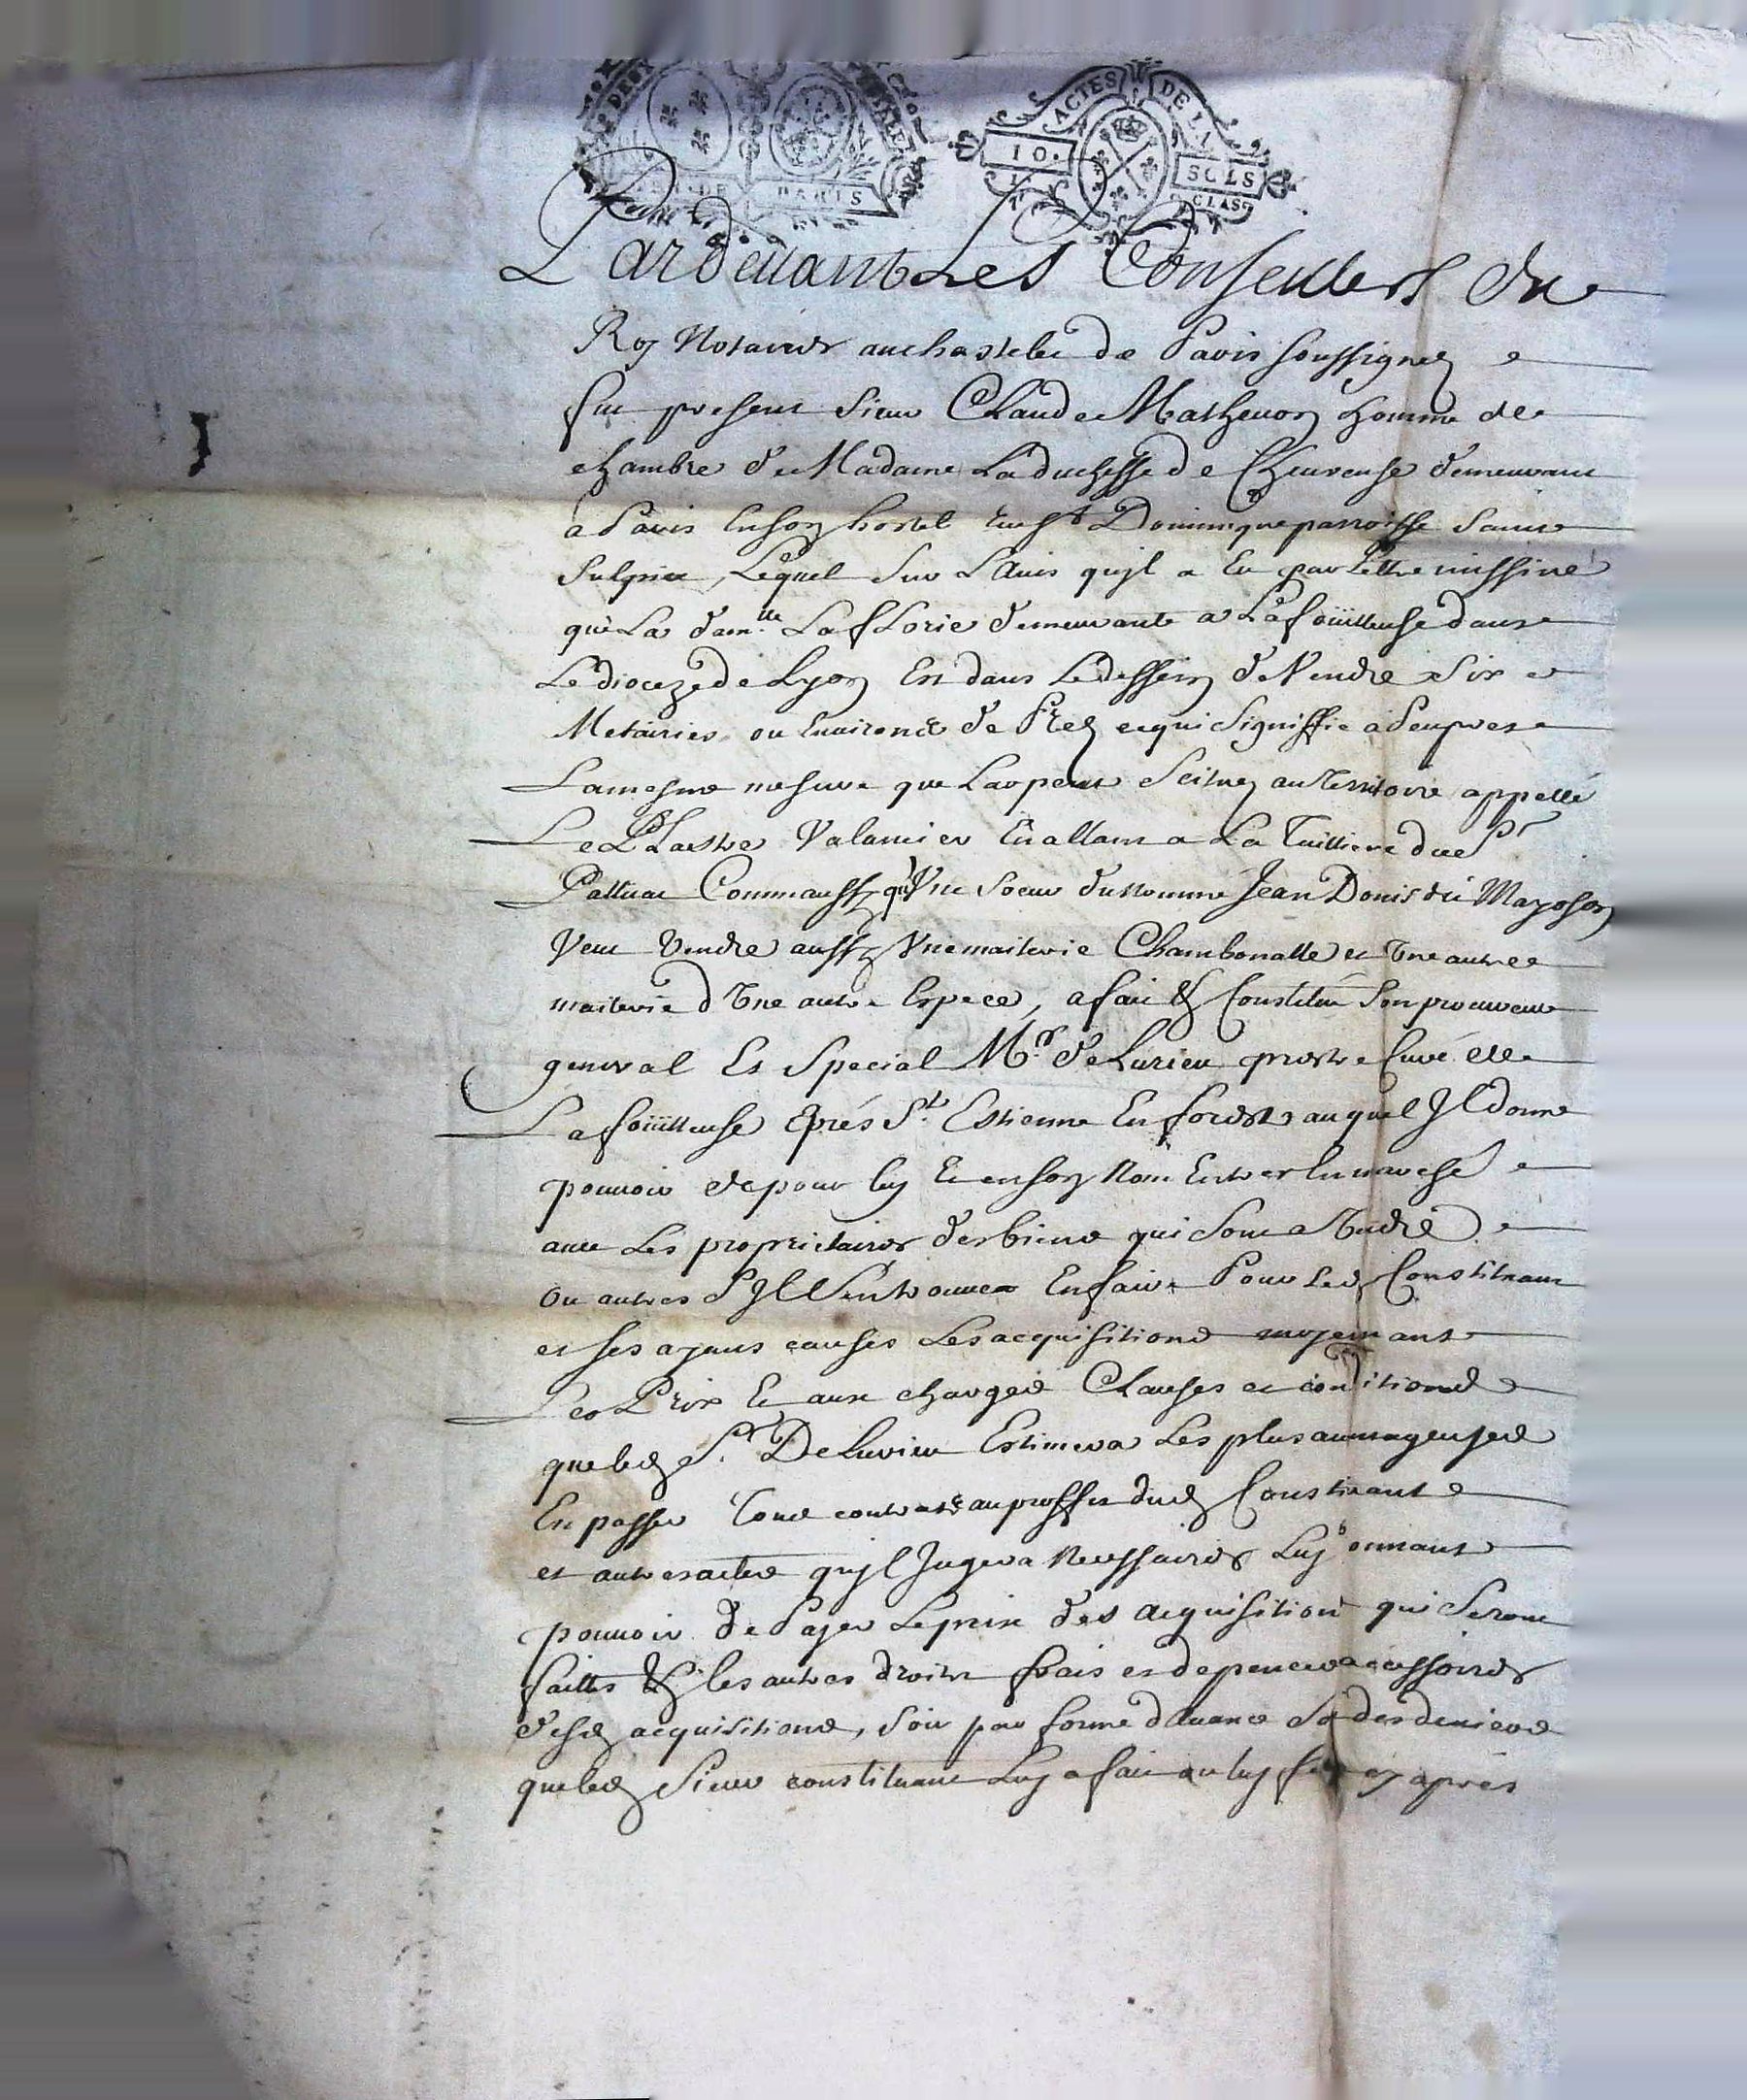 ACTES DE LA
10. SOLS
I. CLAS
GEN. DE PARIS
Pardevant Les Conseillers du
Roy Notaires au chastelet de Paris soussignez
fut present Sieur Claude Mathevon homme de
chambre de Madame La duchesse de Chevreuse demeurant
a Paris En son hostel rue St Dominique parroisse Saint
Sulpice, Lequel Sur L'avis qu'jl a Eu par Lettre missive
que La dam.lle Laflorie demeurante a Lafoüilleuse dans
Le dioceze de Lyon Est dans Le dessein de Vendre Six
Metairies ou Environs de Prez ce qui Signiffie a Peu pres
La mesme mesure que L'arpent Scituez au Territoire appellé
Le Plastre Valancier En allant a La Tuilliere du Sr
Palluat Comm' aussy qu'Une Soeur du Nommé Jean Donis dit Mazoson
Veut Vendre aussy Une maiterie Chambonalle et Une autre
maiterie d'Une autre Espece, a fait & Constitué Son procureur
general Et Special Mr. De Lurieu prestre Curé de
Lafoüilleuse Prés St. Estienne En forest auquel Jl donne
pouvoir de pour luy Et en son Nom Entrer En marché
avec Les proprietaires des biens qui Sont a Vendre
ou autres S'Jl S'en trouve En faire Pour Led Constituant
et ses ayans causes Les acquisitions moyennant
Les Prix Et aux charges Clauses et conditions
que led Sr. De Lurieu Estimera Les plus avantageuses
En passer Tous contrats au proffit dud Constituant
et autres actes qu'jl Jugera Necessaires Luy donnant
pouvoir de Payer Le prix des acquisitions qui Seront
faittes & les autres droits frais et depences accessoires
desd acquisitions, Soit par forme d'avance Soit des deniers
que led Sieur constituant Luy a fait ou luy fera cy aprés